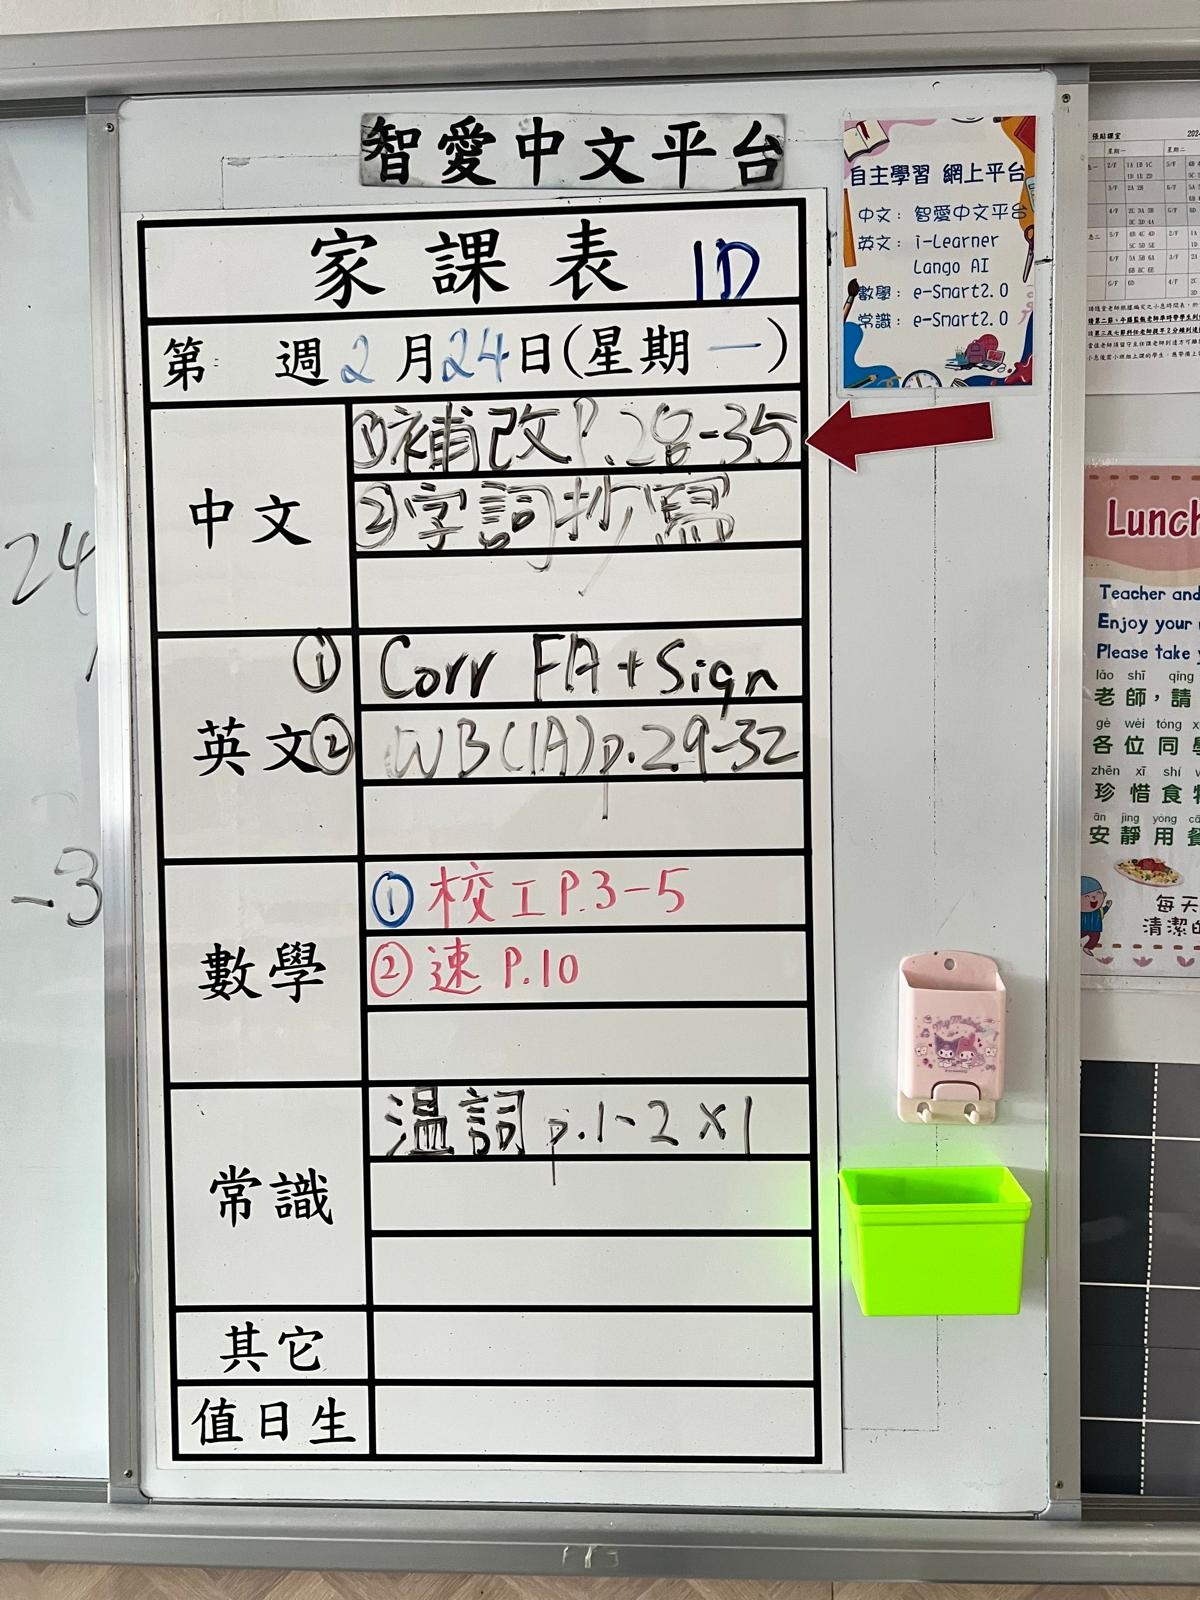 智愛中文平台
家課表 1D
第 週 2月24日(星期一)
中文
①補改P.28-35
②字詞抄寫
英文
① Corr FA + Sign
② WB(1A) p.29-32
數學
① 校工P.3-5
② 速 P.10
常識
溫詞 p.1-2 x1
其它
值日生
自主學習 網上平台
中文：智愛中文平台
英文：i-Learner
Lango AI
數學：e-Smart2.0
常識：e-Smart2.0
24
-3
張貼課室
星期一 星期二
Lunch
Teacher and
Enjoy your
Please take
lǎo shī qǐng
老師，請
gè wèi tóng
各位同
zhēn xī shí
珍惜食
ān jìng yòng
安靜用餐
每天
清潔的